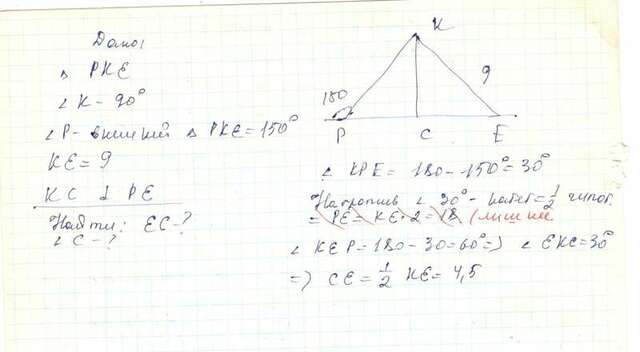 Дано:
Δ PKE
∠ K - 90°
∠ P - внешний Δ PKE = 150°
KE = 9
KC ⊥ PE
Найти: EC - ?
∠ C - ?
K
9
150
P C E
∠ KPE = 180 - 150° = 30°
Напротив ∠ 30° - катет = 1/2 гипот.
= PE = KE · 2 = 18 (лишнее
∠ KEP = 180 - 30 = 60° => ∠ EKC = 30°
=> CE = 1/2 KE = 4,5